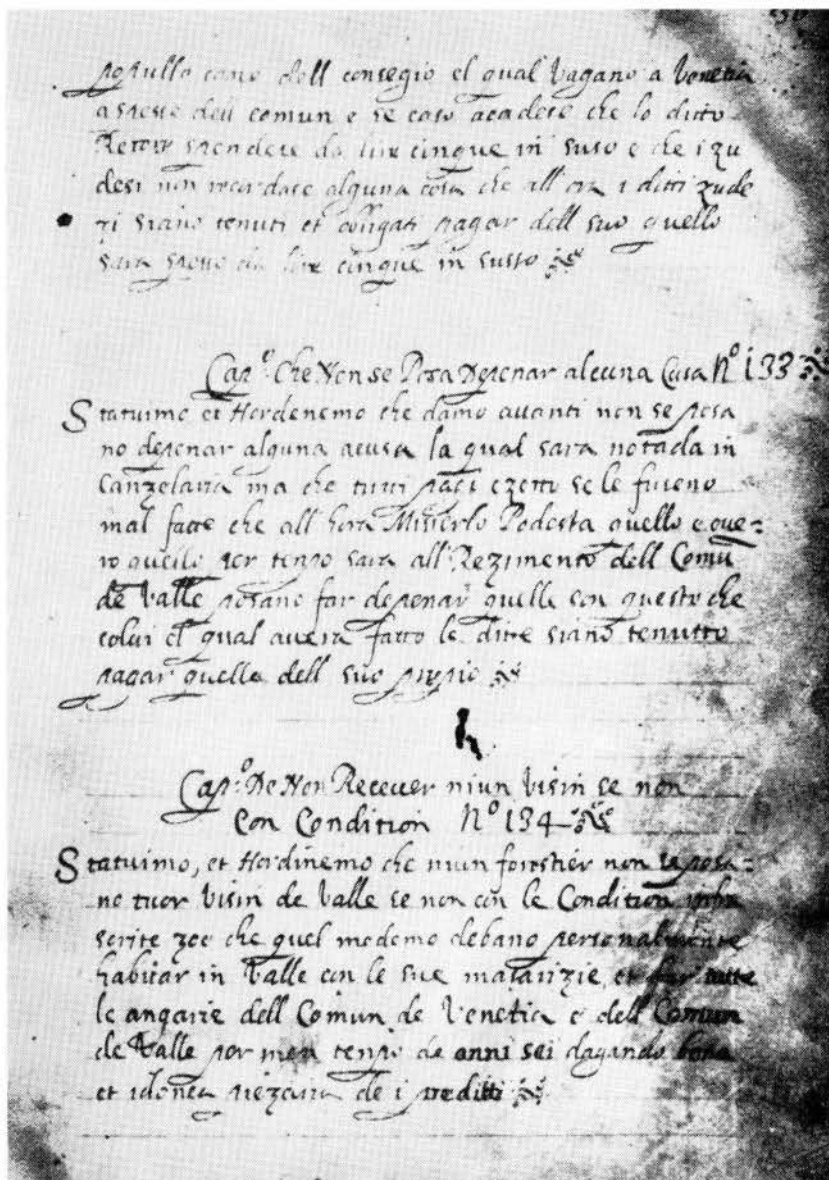 popullo como dell consegio el qual vagano a Venetia
a spesse dell comun e se caso acadese che lo ditto
Retor spendese da lire cinque in suso e che i zu
desi non recordase alguna cosa che all ora i ditti zude
zi siano tenuti et obligati pagar dell suo quello
sara speso da lire cinque in susto
Cap.º Che Non se Posa Depenar alcuna Cusa Nº 133
Statuimo et Hordenemo che damo auanti non se posa
no depenar alguna acusa la qual sara notada in
Canzelaria ma che tutti pagi ezetto se le fuseno
mal fatte che all hora Misserlo Podesta quello e oue=
ro quello per tenpo sara all Rezimento dell Comu
de Valle posano far depenar quelle con questo che
colui el qual auera fatto le ditte siano tenutto
pagar quelle dell suo propio
Cap.º De Non Receuer niun Visin se non
Con Condition Nº 134
Statuimo, et Hordinemo che niun forestier non se posa=
no tuor Visin de Valle se non con le Condition infra
scrite zoe che quel medemo debano personalmente
habitar in Valle con le sue masarizie, et far tutte
le angarie dell Comun de Venetia e dell Comun
de Valle per men tenpo de anni sei dagando bona
et idonea piezaria de i preditti